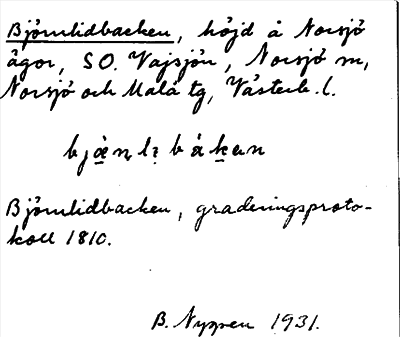 Björnlidbacken, höjd å Norsjö
ägor, SO. Vajsjön, Norsjö sn,
Norsjö och Malå tg, Västerb. l.
Björnlidbacken, graderingsproto-
koll 1810.
1931.